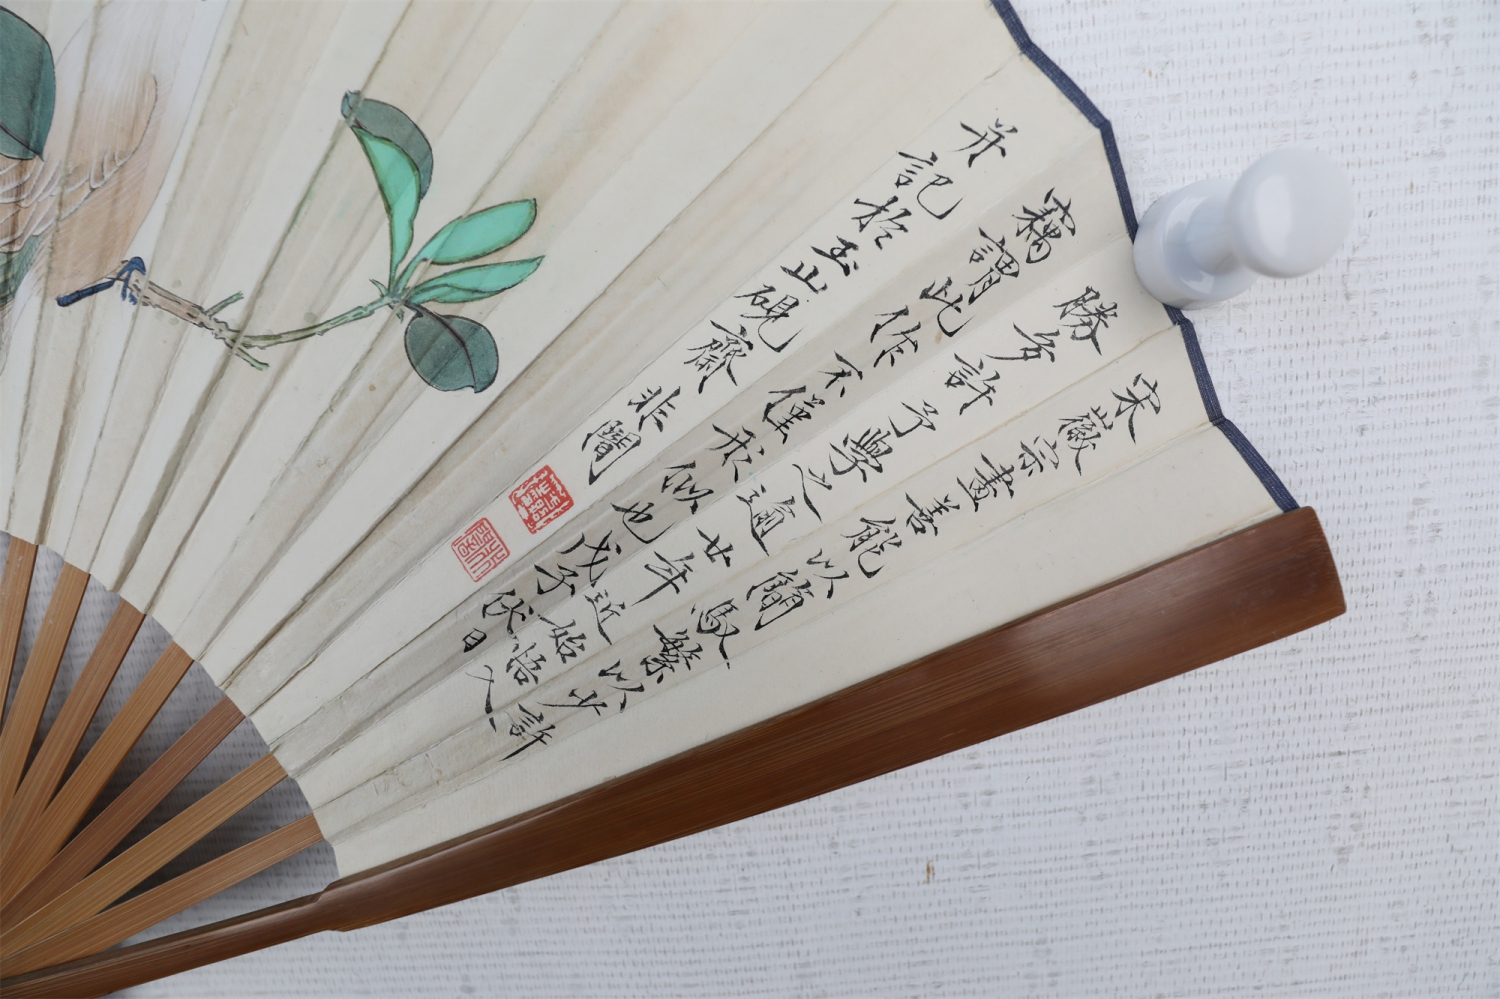 宋徽宗畫善能以簡馭繁以少許
勝多許予學之適廿年近始悟入
竊謂此作不僅形似也戊子伏日
并記於玉山硯齋 非闇